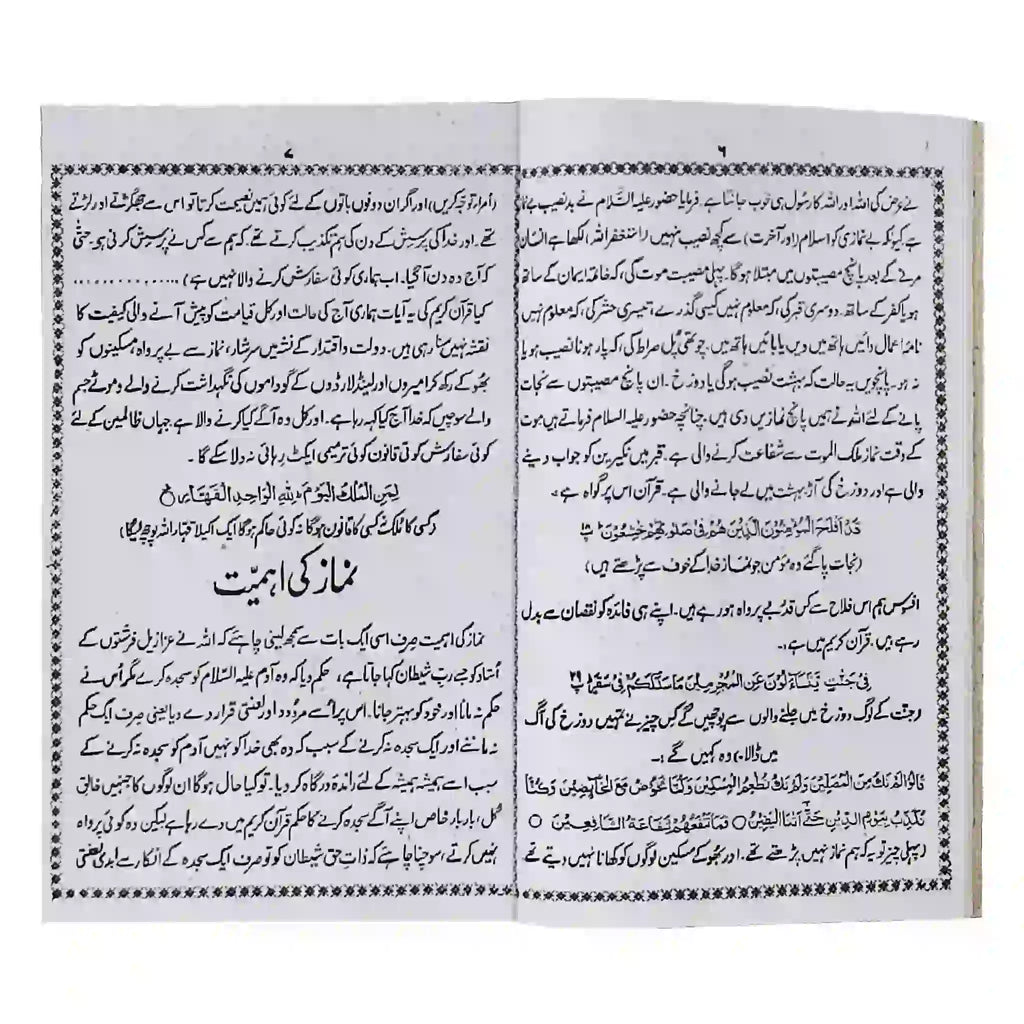 ۶
نے عرض کی اللہ اور اللہ کا رسول ہی خوب جانتا ہے۔ فرمایا حضور علیہ السلام نے بدنصیب بے نماز
ہے کیونکہ بے نمازی کو اسلام (اور آخرت) سے کچھ نصیب نہیں (استغفر اللہ) لکھا ہے انسان
مرنے کے بعد پانچ مصیبتوں میں مبتلا ہوگا۔ پہلی مصیبت موت کی، کہ خاتمہ ایمان کے ساتھ
ہو یا کفر کے ساتھ۔ دوسری قبر کی، کہ معلوم نہیں کیسی گذرے، تیسری حشر کی، کہ معلوم نہیں
نامۂ اعمال دائیں ہاتھ میں دیں یا بائیں ہاتھ میں۔ چوتھی پل صراط کی، کہ پار ہونا نصیب ہو یا
نہ ہو۔ پانچویں یہ حالت کہ بہشت نصیب ہوگی یا دوزخ۔ ان پانچ مصیبتوں سے نجات
پانے کے لئے اللہ نے ہمیں پانچ نمازیں دی ہیں۔ چنانچہ حضور علیہ السلام فرماتے ہیں موت
کے وقت نماز ملک الموت سے شفاعت کرنے والی ہے۔ قبر میں نکیرین کو جواب دینے
والی ہے اور دوزخ کی آڑ بہشت میں لے جانے والی ہے۔ قرآن اس پر گواہ ہے۔
قد افلح المؤمنون الذین ھم فی صلوتھم خشعون
(نجات پا گئے وہ مومن جو نماز خدا کے خوف سے پڑھتے ہیں)
افسوس ہم اس فلاح سے کس قدر بے پرواہ ہو رہے ہیں۔ اپنے ہی فائدہ کو نقصان سے بدل
رہے ہیں۔ قرآن کریم میں ہے :۔
فی جنت یتساءلون عن المجرمین ما سلککم فی سقر ۲۹
(جنت کے لوگ دوزخ میں جلنے والوں سے پوچھیں گے کس چیز نے تمہیں دوزخ کی آگ
میں ڈالا) وہ کہیں گے :۔
قالوا لم نک من المصلین ولم نک نطعم المسکین وکنا نخوض مع الخائضین وکنا
نکذب بیوم الدین حتی اتنا الیقین ○ فما تنفعھم شفاعۃ الشافعین ○
(پہلی چیز تو یہ کہ ہم نماز نہیں پڑھتے تھے۔ اور بھوکے مسکین لوگوں کو کھانا نہیں دیتے تھے
۷
(امراء توجہ کریں) اور اگر ان دونوں باتوں کے لئے کوئی ہمیں نصیحت کرتا تو اس سے جھگڑتے اور لڑتے
تھے۔ اور خدا کی پرسش کے دن کی ہم تکذیب کرتے تھے۔ کہ ہم سے کس نے پرسش کرنی ہو۔ حتیٰ
کہ آج وہ دن آ گیا۔ اب ہماری کوئی سفارش کرنے والا نہیں ہے) ..............
کیا قرآن کریم کی یہ آیات ہماری آج کی حالت اور کل قیامت کو پیش آنے والی کیفیت کا
نقشہ نہیں سنا رہی ہیں۔ دولت و اقتدار کے نشہ میں سرشار، نماز سے بے پرواہ، مسکینوں کو
بھوکے رکھ کر امیروں اور لینڈ لارڈوں کے گوداموں کی نگہداشت کرنے والے و موٹے جسم
والے سوچیں کہ خدا آج کیا کہہ رہا ہے۔ اور کل وہ آگے کیا کرنے والا ہے جہاں ظالمین کے لئے
کوئی سفارش کوئی قانون کوئی ترمیمی ایکٹ رہائی نہ دلا سکے گا۔
لمن الملک الیوم للہ الواحد القھار
(کسی کا ملک نہ کسی کا قانون ہوگا نہ کوئی حاکم ہوگا ایک اکیلا قہار اللہ پوچھے گا)
نماز کی اہمیت
نماز کی اہمیت صرف اسی ایک بات سے سمجھ لینی چاہئے کہ اللہ نے عزازیل فرشتوں کے
استاد کو جسے رب شیطان کہا جاتا ہے، حکم دیا کہ وہ آدم علیہ السلام کو سجدہ کرے مگر اُس نے
حکم نہ مانا اور خود کو بہتر جانا۔ اس پر اُسے مردود اور لعنتی قرار دے دیا یعنی صرف ایک حکم
نہ ماننے اور ایک سجدہ نہ کرنے کے سبب کہ وہ بھی خدا کو نہیں آدم کو سجدہ نہ کرنے کے
سبب اسے ہمیشہ ہمیشہ کے لئے راندۂ درگاہ کر دیا۔ تو کیا حال ہوگا ان لوگوں کا جنہیں خالق
کل، بار بار خاص اپنے آگے سجدہ کرنے کا حکم قرآن کریم میں دے رہا ہے لیکن وہ کوئی پرواہ
نہیں کرتے، سوچنا چاہئے کہ ذات حق شیطان کو تو صرف ایک سجدہ کے انکار سے ابدی لعنتی